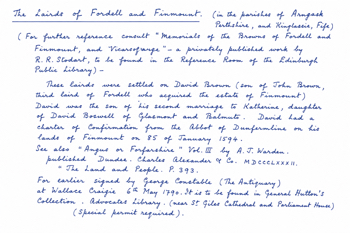 The Lairds of Fordell and Finmount. (in the parishes of Arngask
Perthshire, and Kinglassie, Fife)
(For further reference consult "Memorials of the Browns of Fordell and
Finmount, and Vicarsgrange" - a privately published work by
R. R. Stodart, to be found in the Reference Room of the Edinburgh
Public Library) -
These lairds were settled on David Brown (son of John Brown,
third laird of Fordell who acquired the estate of Finmount)
David was the son of his second marriage to Katherine, daughter
of David Boswell of Glasmont and Balmuto. David had a
charter of Confirmation from the Abbot of Dunfermline on his
lands of Finmount on 25 of January 1594.
See also "Angus or Forfarshire" Vol. III by A. J. Warden.
published Dundee. Charles Alexander & Co. MDCCCLXXXII.
"The Land and People. P. 393.
For earlier signed by George Constable (The Antiquary)
at Wallace Craigie 6th May 1790. It is to be found in General Hutton's
Collection. Advocates Library. (near St Giles Cathedral and Parliament House)
(Special permit required).